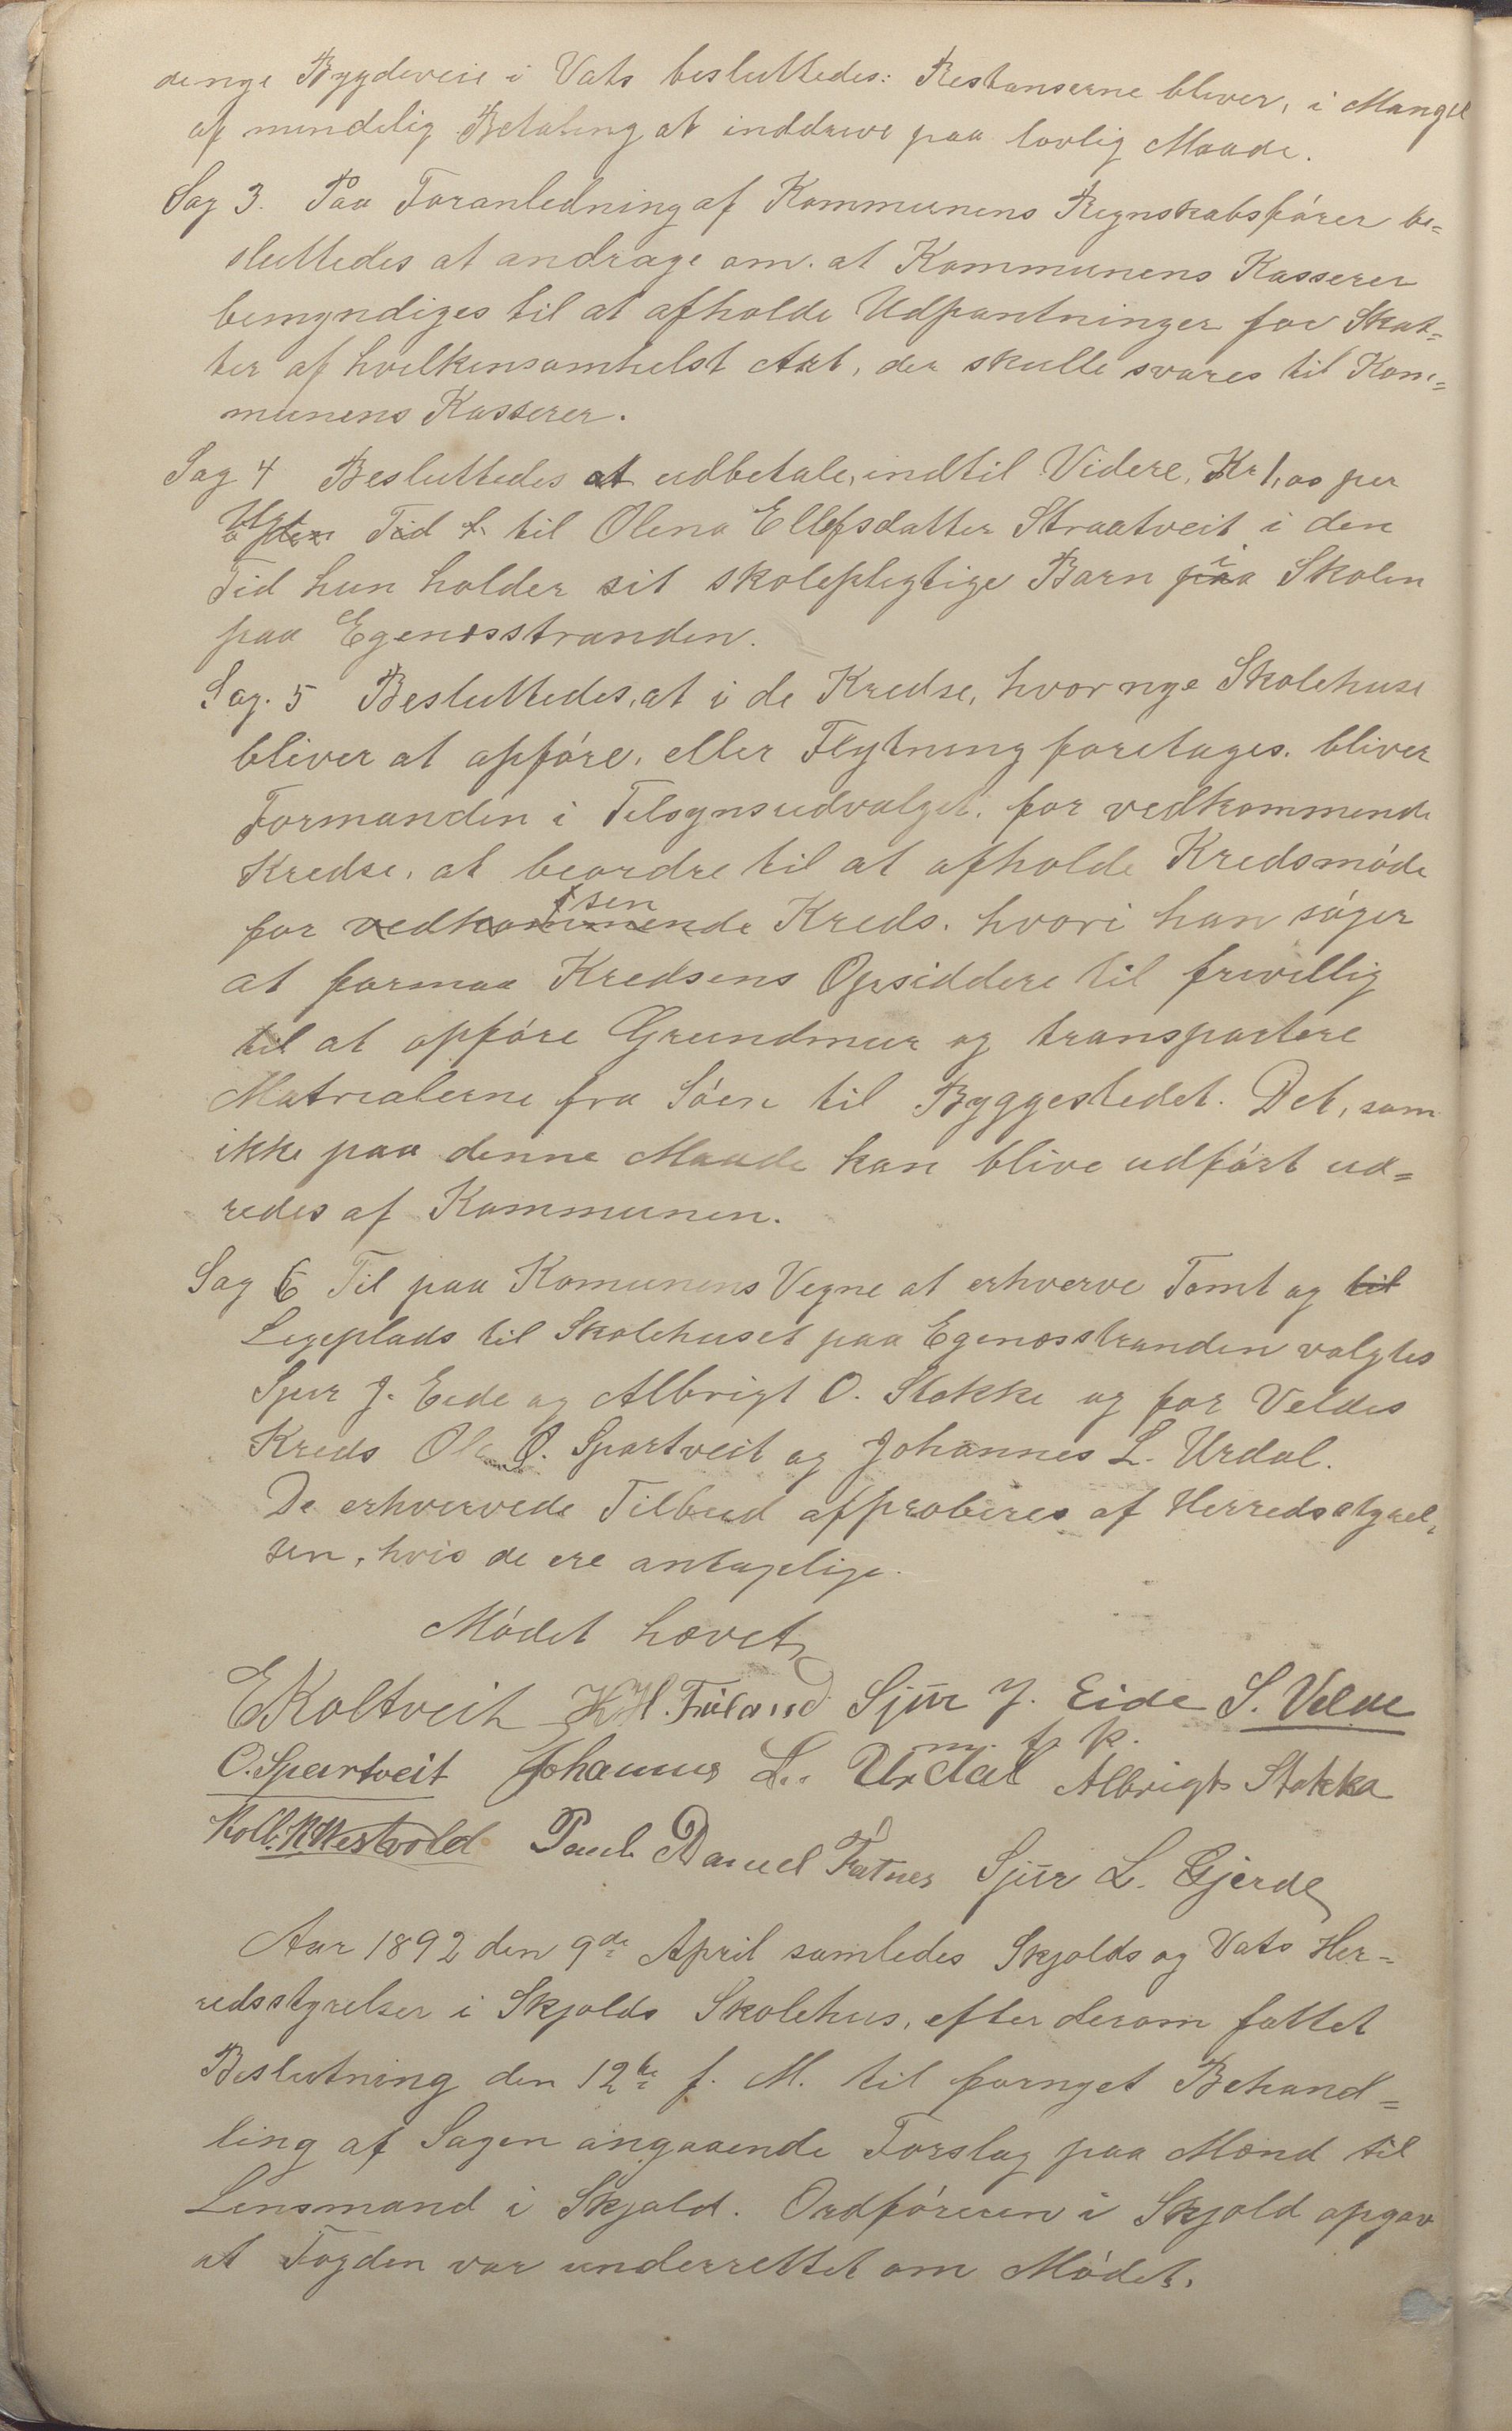 denye Bygdeveie i Vats besluttedes: Restanserne bliver, i Mangel
af mindelig Betaling at inddrive paa lovlig Maade.
Sag 3. Paa Foranledning af Kommunens Regnskabsfører be=
sluttedes at andrage om. at Kommunens Kasserer
bemyndiges til at afholde Udpantninger for Skat=
ter af hvilkensomhelst Art, der skulle svares til Kom=
munens Kasserer.
Sag 4 Besluttedes at udbetale, indtil Videre, Kr 1,00 per
Uge Tid til Olena Ellefsdatter Straatveit i den
Tid hun holder sit skolepligtige Barn i Skolen
paa Egenæsstranden.
Sag. 5 Besluttedes, at i de Kredse, hvor nye Skolehuse
bliver at opføre, eller Flytning foretages. bliver
Formanden i Tilsynsudvalget, for vedkommende
Kredse, at beordre til at afholde Kredsmøde
for vedkommende Kreds. hvori han søger
at formaa Kredsens Opsiddere til frivillig
til at opføre Grundmur og transportere
Matrialerne fra Søen til Byggestedet. Det, som
ikke paa denne Maade kan blive udført ud=
redes af Kommunen.
Sag 6 Til paa Komunens Vegne at erhverve Tomt og til
Legeplads til Skolehuset paa Egenæsstranden valgtes
Sjur J. Eide og Albrigt O. Stokke og for Veldes
Kreds Ole O. Spartveit og Johannes L. Urdal.
De erhvervede Tilbud approberes af Herredsstyrel=
sen, hvis de ere antagelige.
Mødet hævet
E Koltveit K H. Frøland Sjur J. Eide S. Velde
m. f. p.
O. Spartveit Johannes L. Urdal Albrigt Stokka
Kolb. K Westvold Paul Daniel Fatnes Sjur L. Gjerde
Aar 1892 den 9de April samledes Skjolds og Vats Her=
redsstyrelser i Skjolds Skolehus, efter derom fattet
Beslutning den 12te f. M. til fornyet Behand=
ling af Sagen angaaende Forslag paa Mænd til
Lensmand i Skjold. Ordføreren i Skjold opgav
at Fogden var underrettet om Mødet.